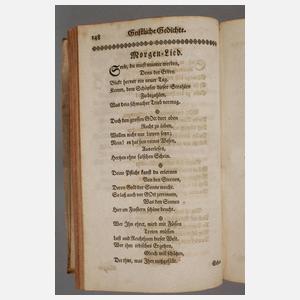 148
Geistliche Gedichte.
Morgen-Lied.
Seele, du must munter werden,
Denn der Erden
Blickt hervor ein neuer Tag.
Komm, dem Schöpfer dieser Strahlen
Zu bezahlen,
Was dein schwacher Trieb vermag.
Doch den grossen GOtt dort oben
Recht zu loben,
Wollen nicht nur Lippen seyn;
Nein! es hat sein reines Wesen,
Auserlesen,
Hertzen ohne falschen Schein.
Deine Pflicht kanst du erlernen
Von den Sternen,
Deren Gold der Sonne weicht.
So laß auch vor GOtt zerrinnen,
Was den Sinnen
Hier im Finstern schöne deucht.
Wer Ihn ehret, wird mit Füssen
Treten müssen
Lust und Reichthum dieser Welt.
Wer ihm irdisches Ergetzen,
Gleich will schätzen,
Der thut, was Ihm mißgefällt.